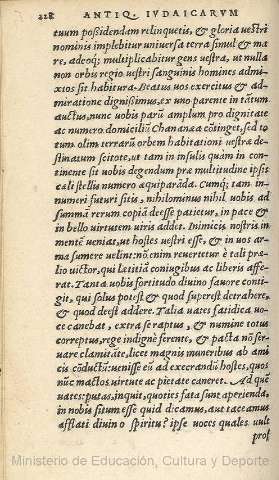 228 ANTIQ. IVDAICARVM
tuum possidendam relinquetis, & gloria uestri
nominis implebitur uniuersa terra simul & ma
re, adeoq; multiplicabitur gens uestra, ut nulla
non orbis regio uestri sanguinis homines admi
xtos sit habitura. Beatus uos exercitus & ad-
miratione dignissimus, ex uno parente in tātum
auctus, nunc uobis parū amplum pro dignitate
ac numero domicilium Chananæa cōtinget, sed to
tum olim terrarū orbem habitationi uestræ de-
stinatum scitote, ut tam in insulis quàm in con-
tinente sit uobis degendum præ multitudine ipsis
cœli stellis numero æquiparāda. Cumq; tam in-
numeri futuri sitis, nihilominus nihil uobis ad
summã rerum copiā deesse patietur, in pace &
in bello uirtutem uiris addet. Inimicis nostris in
mentē ueniat, ut hostes uestri esse, & in uos ar
ma sumere uelint: nō enim reuertetur è tali præ-
lio uictor, qui lætitiā coniugibus ac liberis affe-
rat. Tanta uobis fortitudo diuino fauore contin
git, qui solus potest & quod superest detrahere,
& quod deest addere. Talia uates fatidica uo-
ce canebat, extra se raptus, & numine totus
correptus, rege indignè ferente, & pacta nō ser-
uare clamitāte, licet magnis muneribus ab ami
cis cōductū: uenisse eū ad execrandū hostes, quos
nūc mactos uirtute ac pietate canerct. Ad quē
uates: putas, inquit, quoties fata sunt aperienda,
in nobis situm esse quid dicamus, aut taceamus
afflati diuino spiritu? ipse uoces quales uult
prof
Ministerio de Educación, Cultura y Deporte